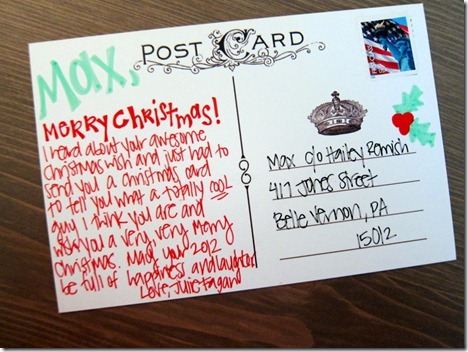 POST CARD
Max,
Merry Christmas!
I heard about your awesome
Christmas wish and just had to
send you a christmas card
to tell you what a totally COOL
guy I think you are and
wish you a very, very Merry
Christmas. May your 2012
be full of happiness and laughter!
Love, Julie Fagan
Max c/o Hailey Remich
417 Jones Street
Belle Vernon, PA
15012